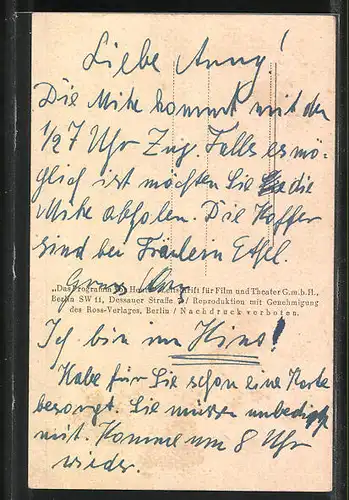 Liebe Anny!
Die Mike kommt mit den
1/27 Uhr Zug. Falls es mö-
glich ist möchten Sie die
Mike abholen. Die Koffer
sind bei Fräulein Ethel.
Gruss
„Das Programm von Heute“ Zeitschrift für Film und Theater G.m.b.H.,
Berlin SW 11, Dessauer Straße / Reproduktion mit Genehmigung
des Ross-Verlages, Berlin / Nachdruck verboten.
Ich bin im Kino!
Habe für Sie schon eine Karte
besorgt. Sie müssen unbedingt
mit. Komme um 8 Uhr
wieder.